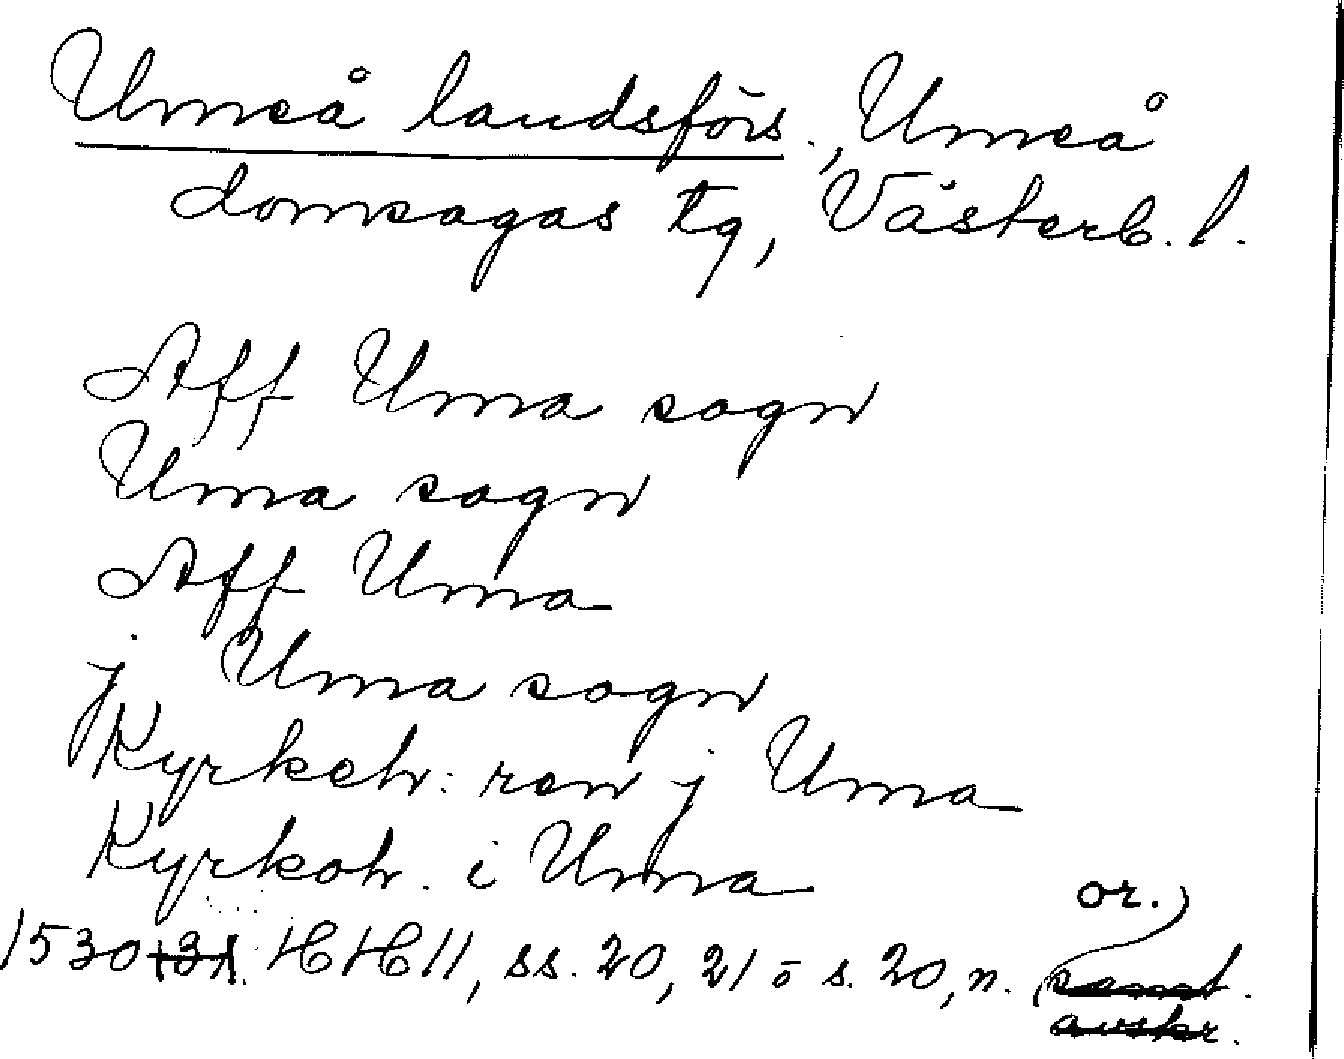 Umeå landsförs., Umeå
domsagas tg, Västerb. l.
Aff Uma sogn
Uma sogn
Aff Uma
j Uma sogn
Kyrkeh: ren j Uma
Kyrkoh. i Uma
or.
1530 HH 11, ss. 20, 21 o s. 20, n. samt.
avskr.